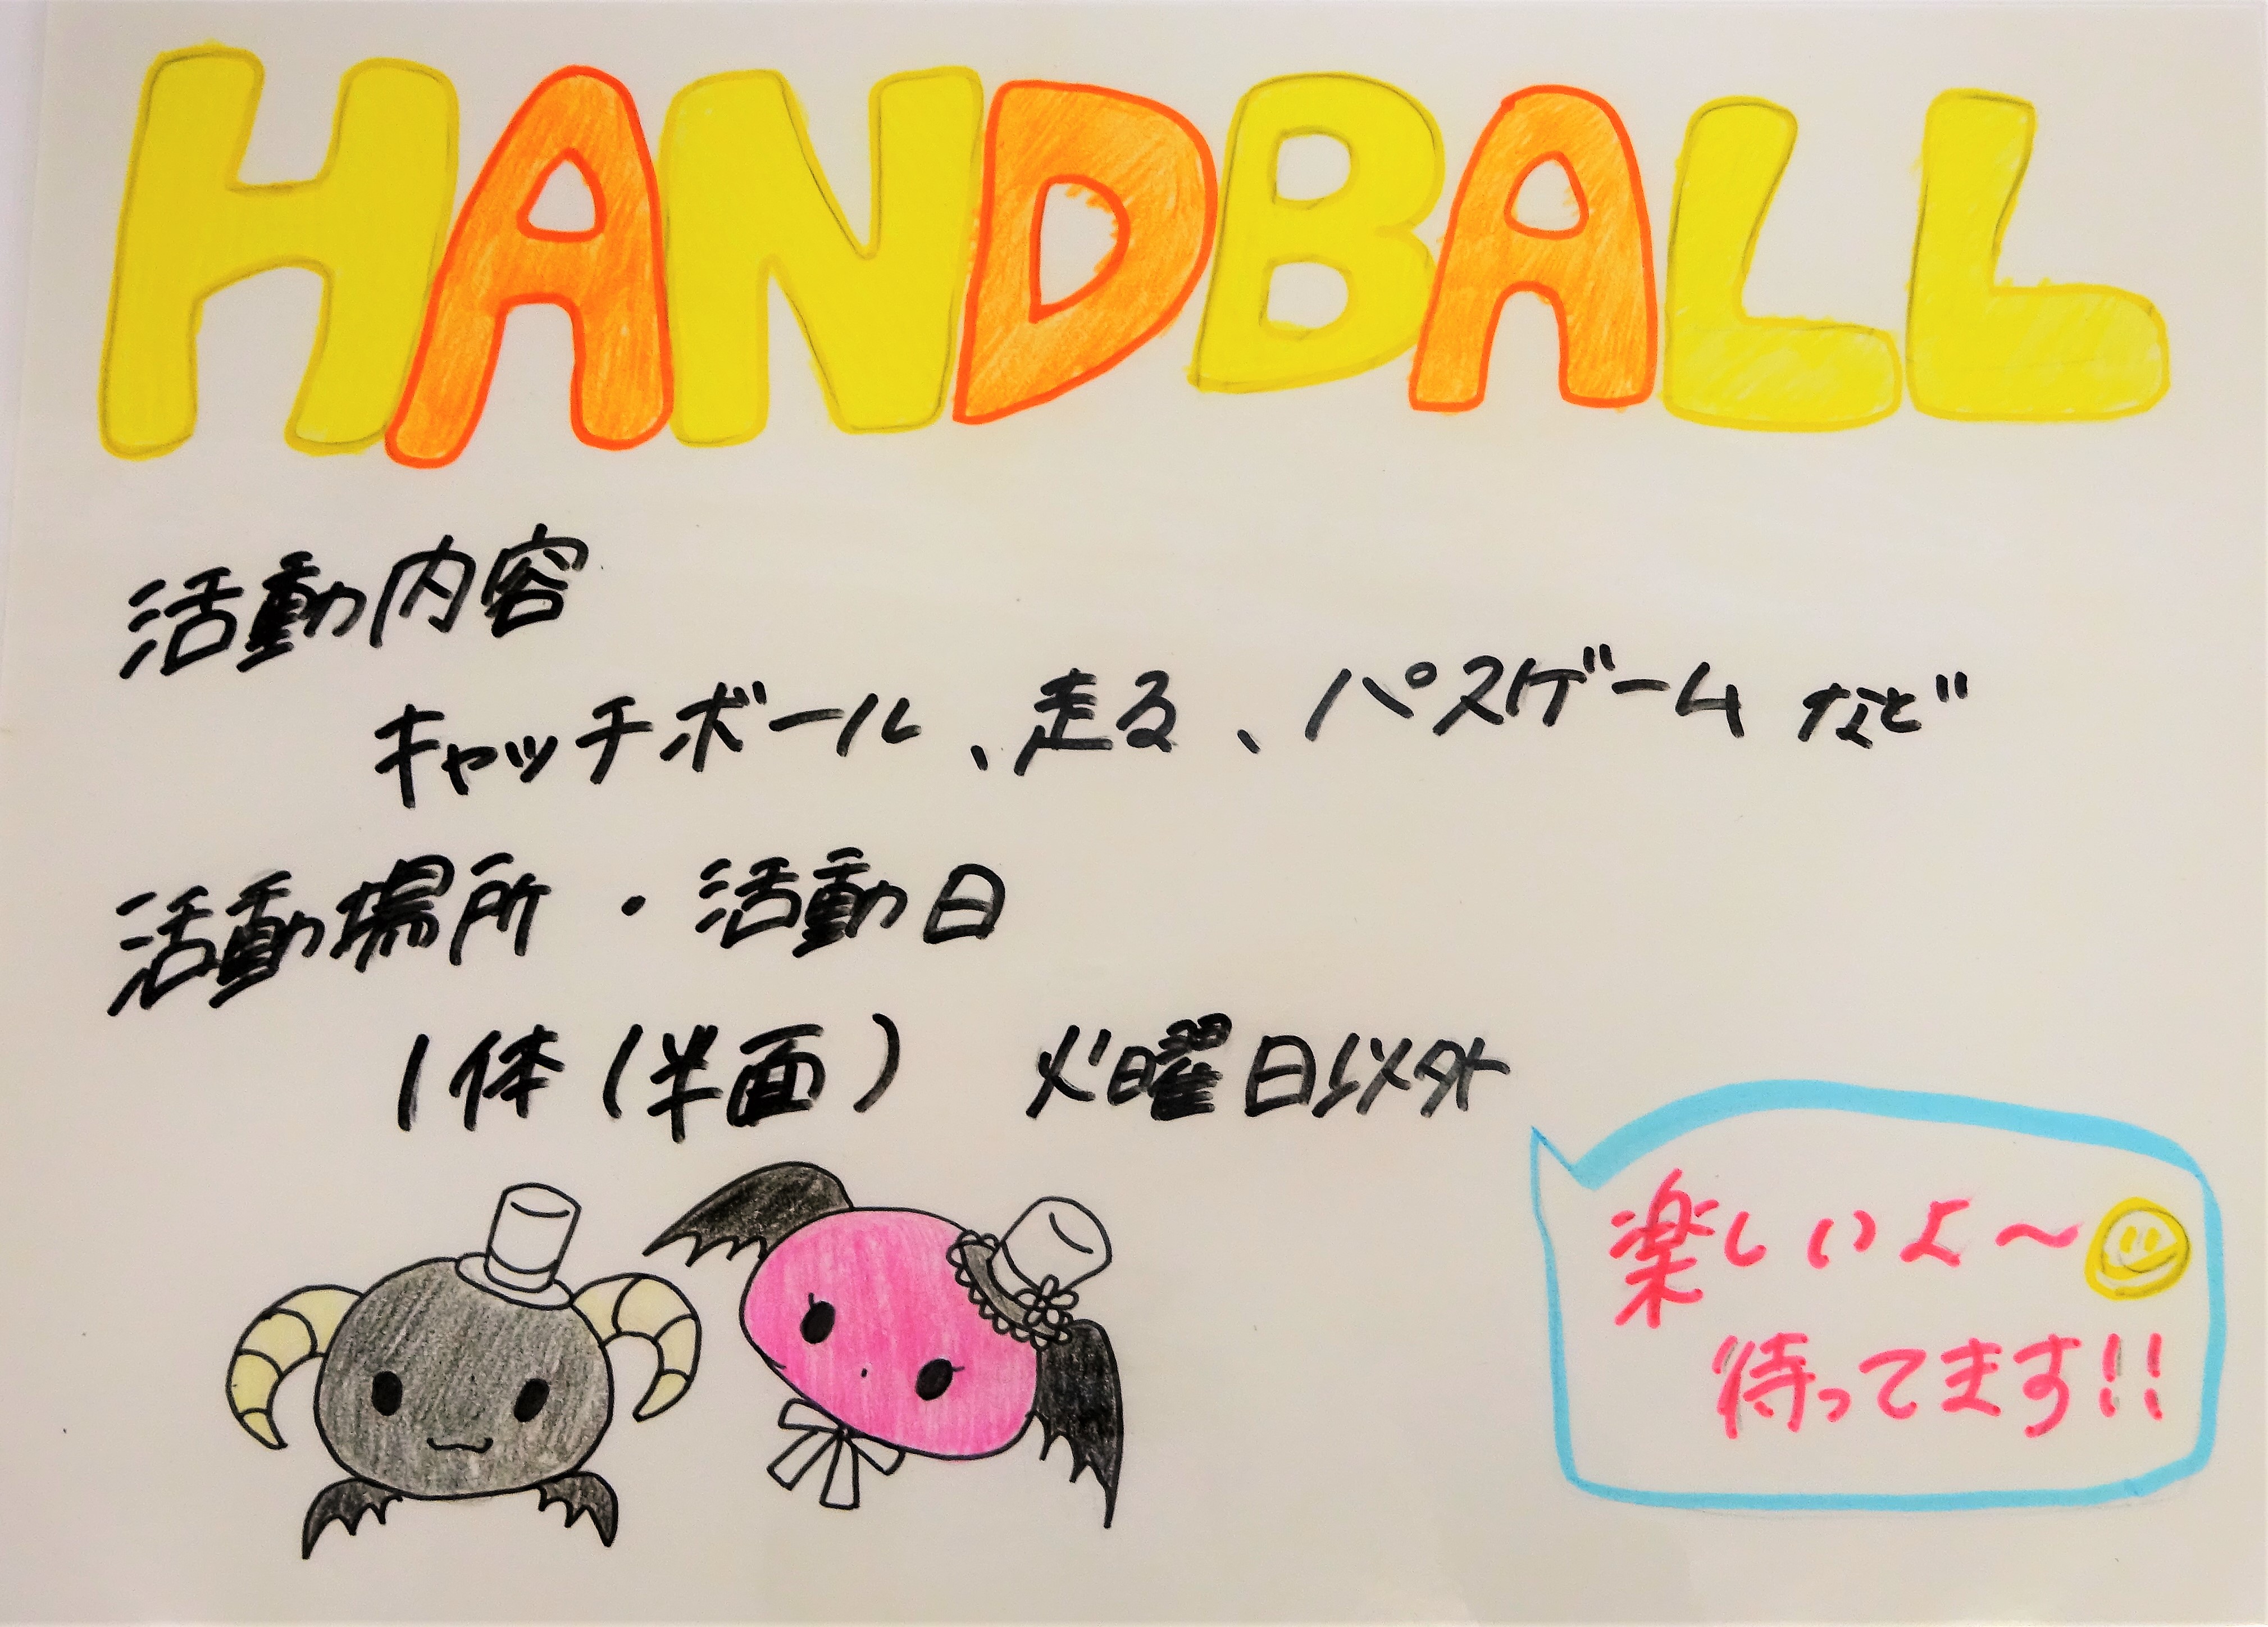 HANDBALL
活動内容
キャッチボール、走る、パスゲームなど
活動場所・活動日
1体(半面) 火曜日以外
楽しいよ〜
待ってます!!